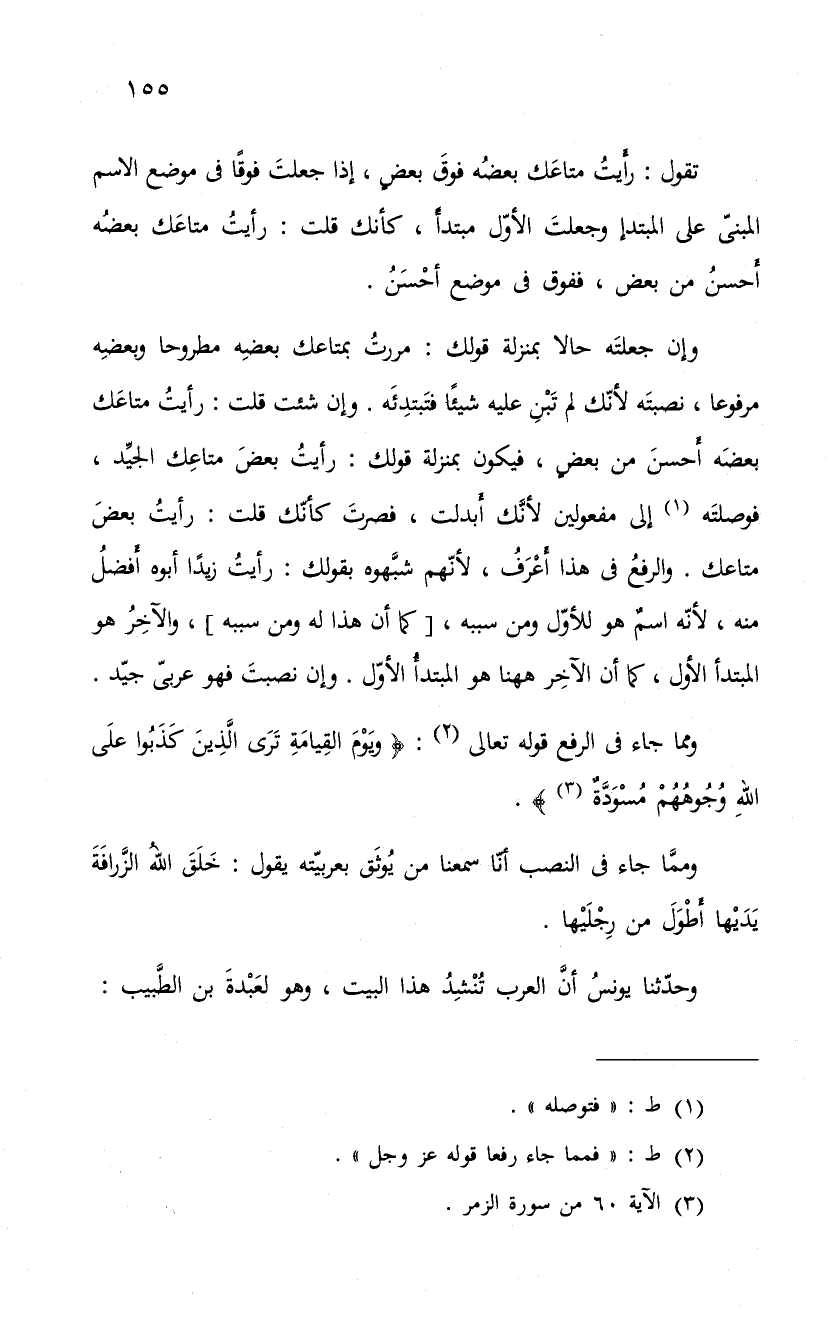 ١٥٥
تقول : رأَيتُ متاعَك بعضُه فوقَ بعضٍ ، إذا جعلتَ فوقًا فى موضع الاسم
المبنىّ على المبتدإ وجعلتَ الأوّل مبتدأً ، كأنك قلت : رأيتُ متاعَك بعضُه
أَحسنُ من بعض ، ففوق فى موضع أحْسَنُ .
وإن جعلتَه حالا بمنزلة قولك : مررتُ بمتاعك بعضِه مطروحا وبعضِه
مرفوعا ، نصبتَه لأنّك لم تَبْنِ عليه شيئًا فتَبتدِئَه . وإن شئت قلت : رأيتُ متاعَك
بعضَه أَحسنَ من بعضٍ ، فيكون بمنزلة قولك : رأيتُ بعضَ متاعِك الجيِّد ،
فوصلتَه (١) إلى مفعولين لأنَّك أَبدلت ، فصرتَ كأنّك قلت : رأيتُ بعضَ
متاعك . والرفعُ فى هذا أَعْرَفُ ، لأنّهم شبَّهوه بقولك : رأيتُ زيدًا أبوه أَفضلُ
منه ، لأنّه اسمٌ هو للأوّل ومن سببه ، [ كما أن هذا له ومن سببه ] ، والآخِرُ هو
المبتدأ الأول ، كما أن الآخِر ههنا هو المبتدأُ الأوّل . وإن نصبتَ فهو عربىّ جيّد .
ومما جاء فى الرفع قوله تعالى (٢) : ﴿ ويَوْمَ القِيامَةِ تَرَى الَّذِينَ كَذَبُوا علَى
اللهِ وُجُوهُهُمْ مُسْوَدَّةٌ (٣) ﴾ .
وممَّا جاء فى النصب أنّا سمعنا من يُوثَق بعربيّته يقول : خَلَقَ اللهُ الزَّرافَةَ
يَدَيْها أَطْوَلَ من رِجْلَيْها .
وحدّثنا يونسُ أنَّ العرب تُنْشِدُ هذا البيت ، وهو لعَبْدةَ بن الطَّبيب :
(١) ط : « فتوصله » .
(٢) ط : « فمما جاء رفعا قوله عز وجل » .
(٣) الآية ٦٠ من سورة الزمر .